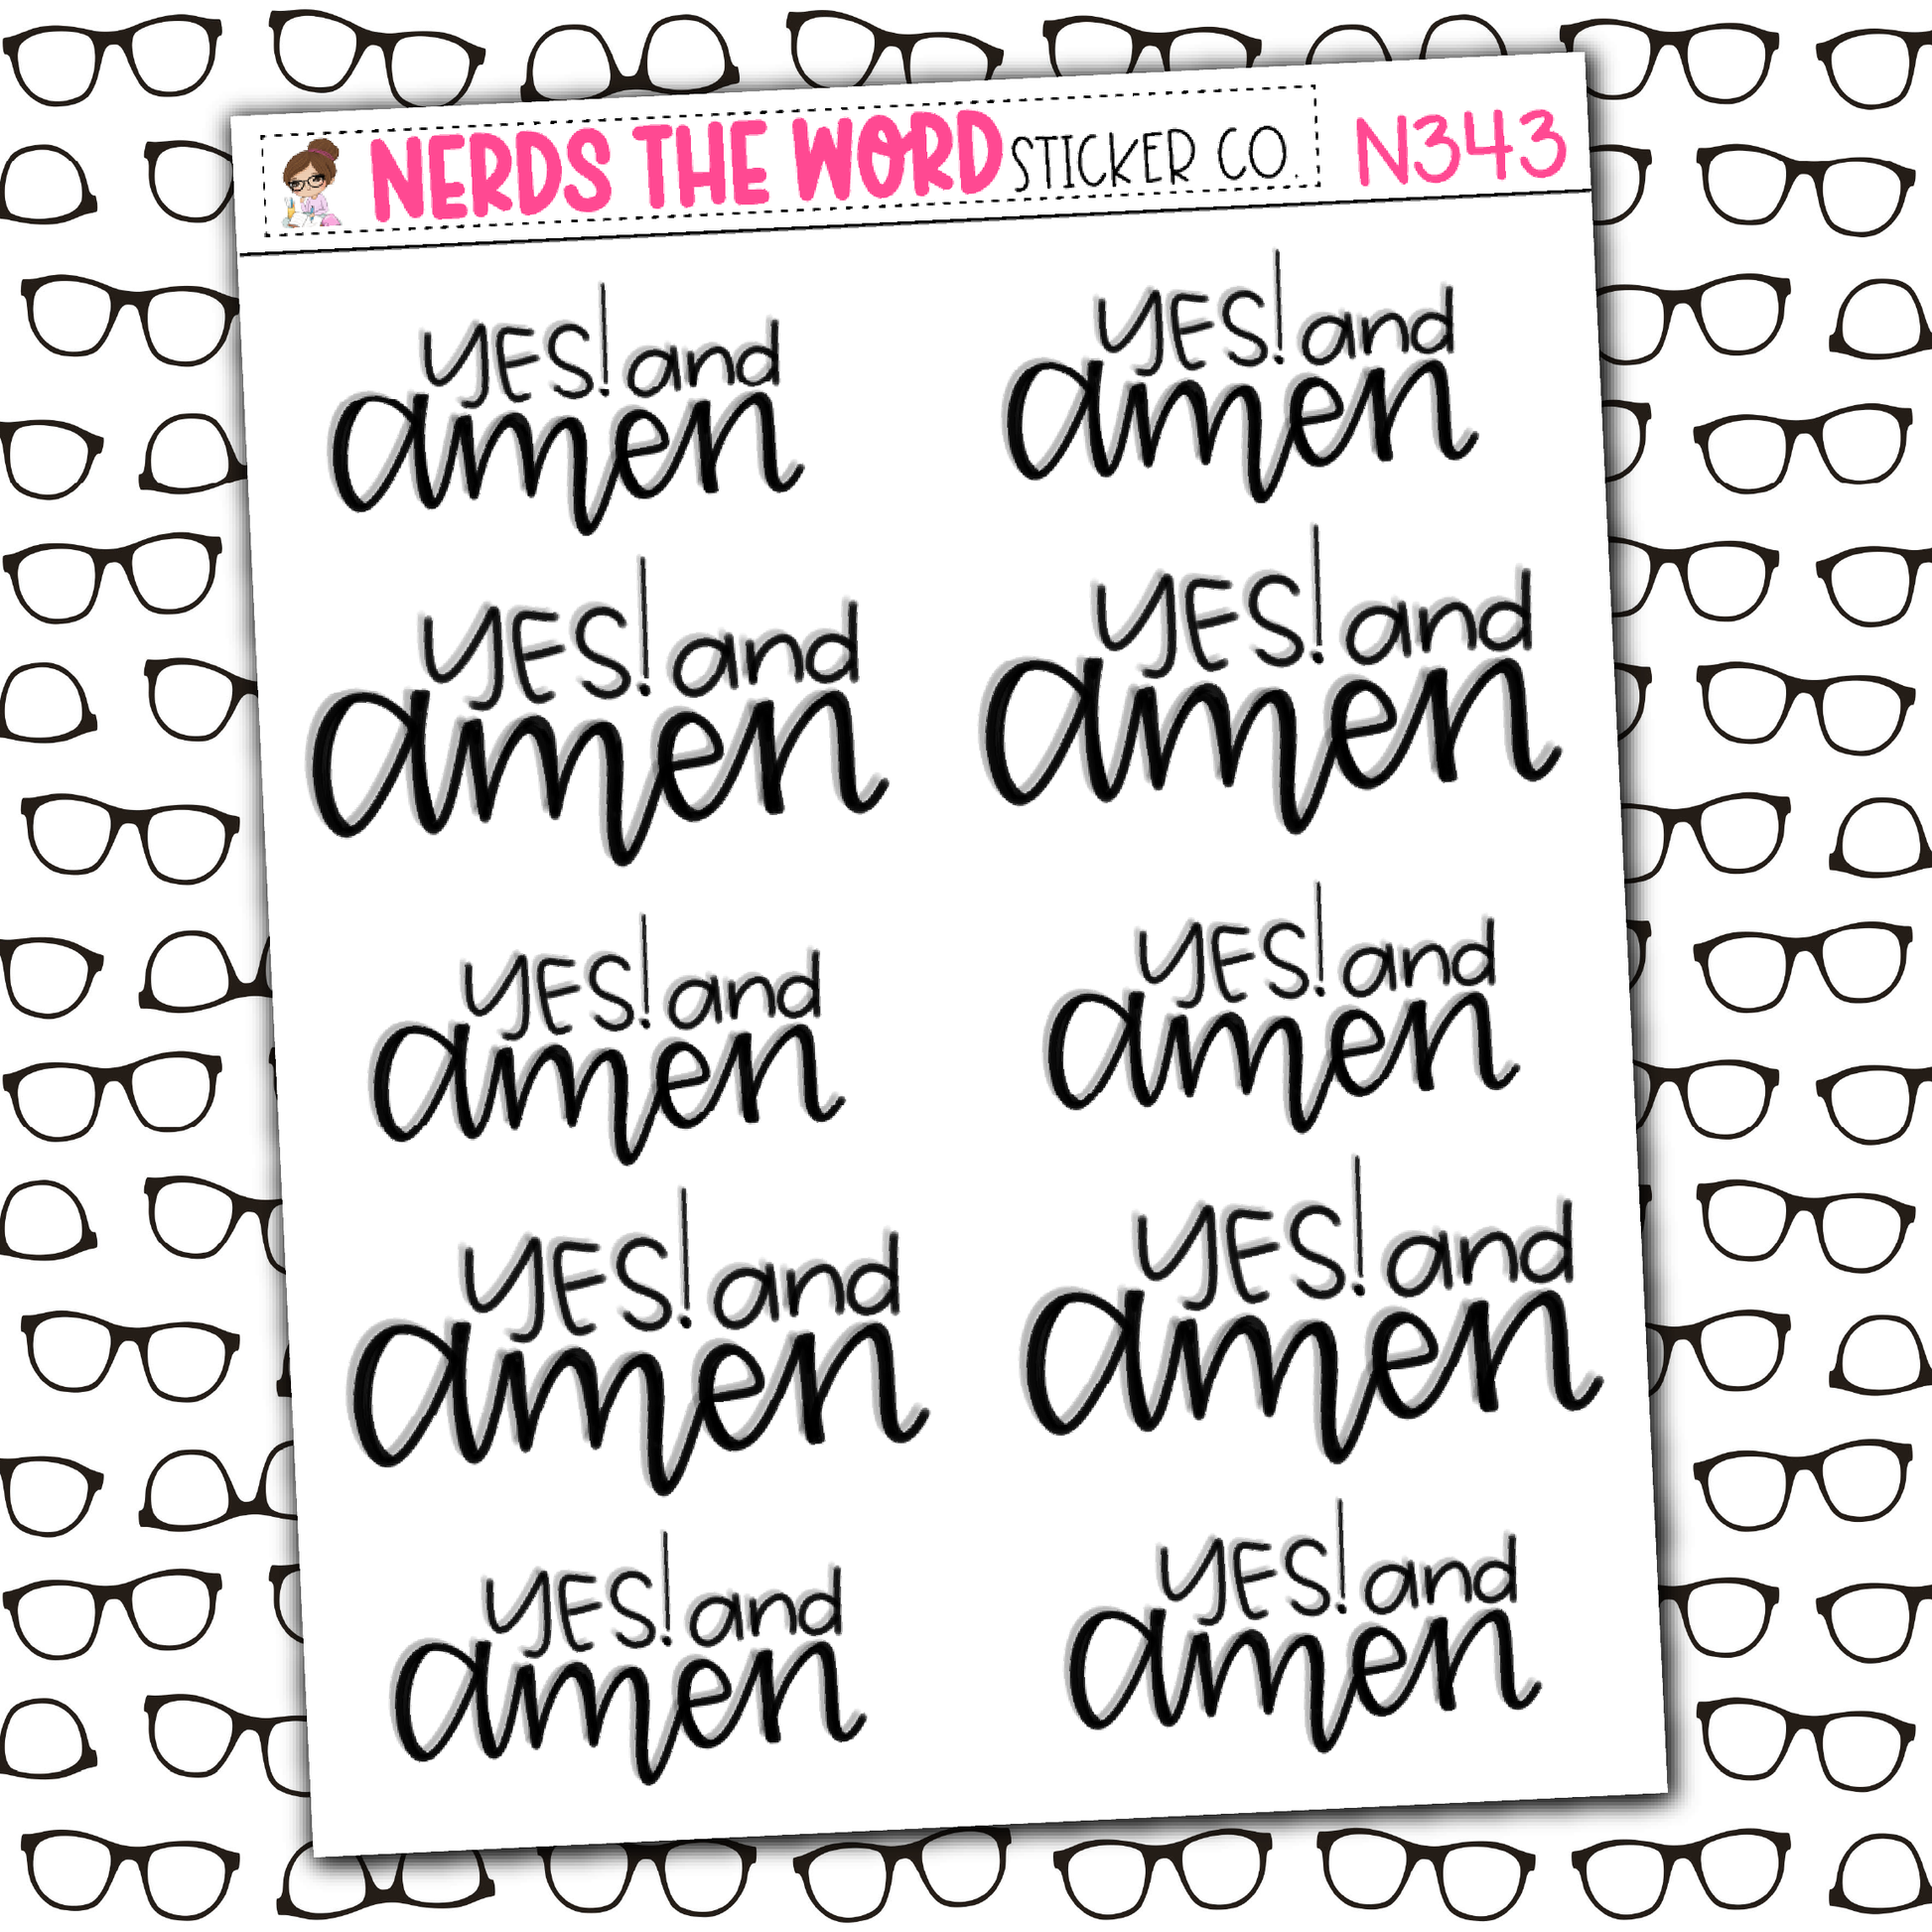 NERDS THE WORD STICKER CO. N343
YES! and YES! and
amen amen
YES! and YES! and
amen amen
YES! and YES! and
amen amen
YES! and YES! and
amen amen
YES! and YES! and
amen amen